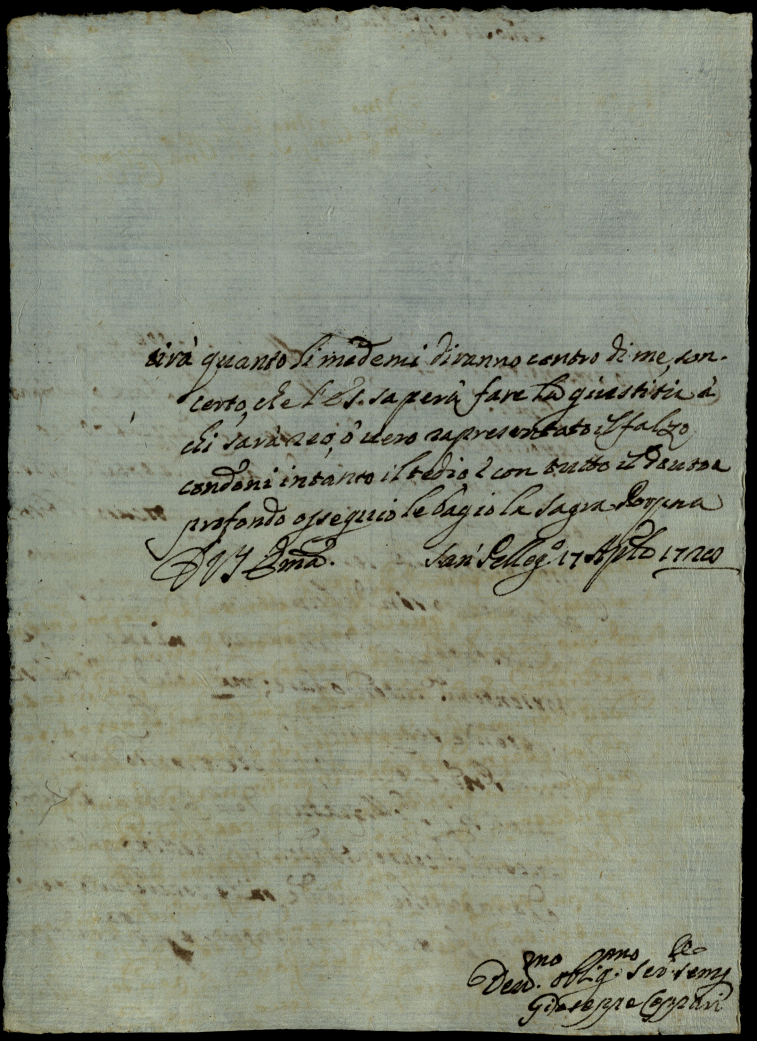 tirà quanto li mede.mi diranno contro di me, son
certo, che l'E.S. saperà fare la giustitia à
chi sarà reo, ò vero rapresentato il falzo
condoni intanto il tedio è con tutto il
profondo ossequio le bagio la sagra Porpora
Di V.S. Em.a San Pelleg.o 17 Aplē 1720
Deu.mo oblig.mo Ser.
Giuseppe Coppari